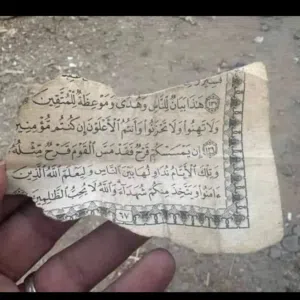 هَٰذَا بَيَانٌ لِّلنَّاسِ وَهُدًى وَمَوْعِظَةٌ لِّلْمُتَّقِينَ
وَلَا تَهِنُوا وَلَا تَحْزَنُوا وَأَنتُمُ الْأَعْلَوْنَ إِن كُنتُم مُّؤْمِنِينَ
﴿١٣٩﴾ إِن يَمْسَسْكُمْ قَرْحٌ فَقَدْ مَسَّ الْقَوْمَ قَرْحٌ مِّثْلُهُ
وَتِلْكَ الْأَيَّامُ نُدَاوِلُهَا بَيْنَ النَّاسِ وَلِيَعْلَمَ اللَّهُ الَّذِينَ
ءَامَنُوا وَيَتَّخِذَ مِنكُمْ شُهَدَاءَ وَاللَّهُ لَا يُحِبُّ الظَّالِمِينَ
٦٧